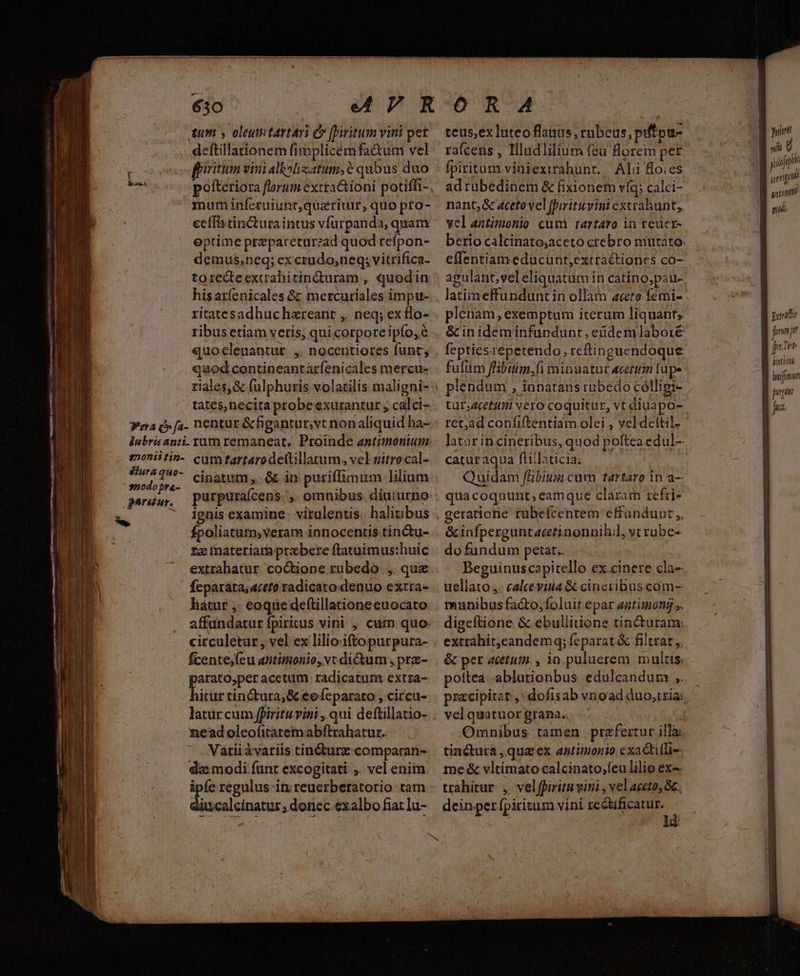 630 AVRORA
tum, oleum tartari & spiritum vini per
destillationem simplicem factum vel
spiritum vini alkolizatum, è quibus duo
posteriora florum extractioni potissi-
mum inseruiunt, quæritur, quo pro-
cessu tinctura intus vsurpanda, quam
optime præparetur: ad quod respon-
demus, neq; ex crudo, neq; vitrifica-
to recte extrahi tincturam, quod in
his arsenicales & mercuriales impu-
ritates adhuc hæreant, neq; ex flo-
ribus etiam veris, qui corpore ipso, è
quo eleuantur, nocentiores sunt,
quod contineant arsenicales mercu-
riales, & sulphuris volatilis maligni-
tates, nec ita probe exurantur, calci-
nentur & figantur, vt non aliquid ha-
rum remaneat. Proinde antimonium
cum tartaro destillatum, vel nitro cal-
cinatum, & in purissimum lilium
purpurascens, omnibus diuturno
ignis examine virulentis halitibus
spoliatum, veram innocentis tinctu-
ræ materiam præbere statuimus: huic
extrahatur coctione rubedo, quæ
separata, aceto radicato denuo extra-
hatur, eoque destillatione euocato
affundatur spiritus vini, cum quo
circuletur, vel ex lilio isto purpura-
scente, seu antimonio, vt dictum, præ-
parato, per acetum radicatum extra-
hitur tinctura, & eo separato, circu-
latur cum spiritu vini, qui destillatio-
ne ad oleositatem abstrahatur.
Varii à variis tincturæ comparan-
dæ modi sunt excogitati, vel enim
ipse regulus in reuerberatorio tam
diu calcinatur, donec ex albo fiat lu-
Vera & sa-
lubris anti-
monii tin-
ctura quo-
modo præ-
paretur.
teus, ex luteo flauus, rubeus, purpu-
rascens, Illud lilium seu florem per
spiritum vini extrahunt. Alii flores
ad rubedinem & fixionem vsq; calci-
nant, & aceto vel spiritu vini extrahunt,
vel antimonio cum tartaro in reuer-
berio calcinato, aceto crebro mutato
essentiam educunt, extractiones co-
agulant, vel eliquatum in catino, pau-
latim effundunt in ollam aceto semi-
plenam, exemptum iterum liquant,
& in idem infundunt, eũdem laborē
septies repetendo, restinguendoque
fusum stibium, si minuatur acetum sup-
plendum, innatans rubedo colligi-
tur, acetum vero coquitur, vt diu apo-
ret, ad consistentiam olei, vel destil-
latur in cineribus, quod postea edul-
catur aqua stillaticia.
Quidam stibium cum tartaro in a-
qua coquunt, eamque claram refri-
geratione rubescentem effundunt,
& inspergunt aceti nonnihil, vt rube-
do fundum petat.
Beguinus capitello ex cinere cla-
uellato, calce viua & cineribus com-
munibus facto, soluit epar antimonij,
digestione & ebullitione tincturam
extrahit, eandemq; separat & filtrat,
& per acetum, in puluerem multis
postea ablutionbus edulcandum,
præcipitat, dosis ab vno ad duo, tria,
vel quatuor grana.
Omnibus tamen præfertur illa
tinctura, quæ ex antimonio exactissi-
me & vltimato calcinato, seu lilio ex-
trahitur, vel spiritu vini, vel aceto, &c,
dein per spiritum vini rectificatur.
Id